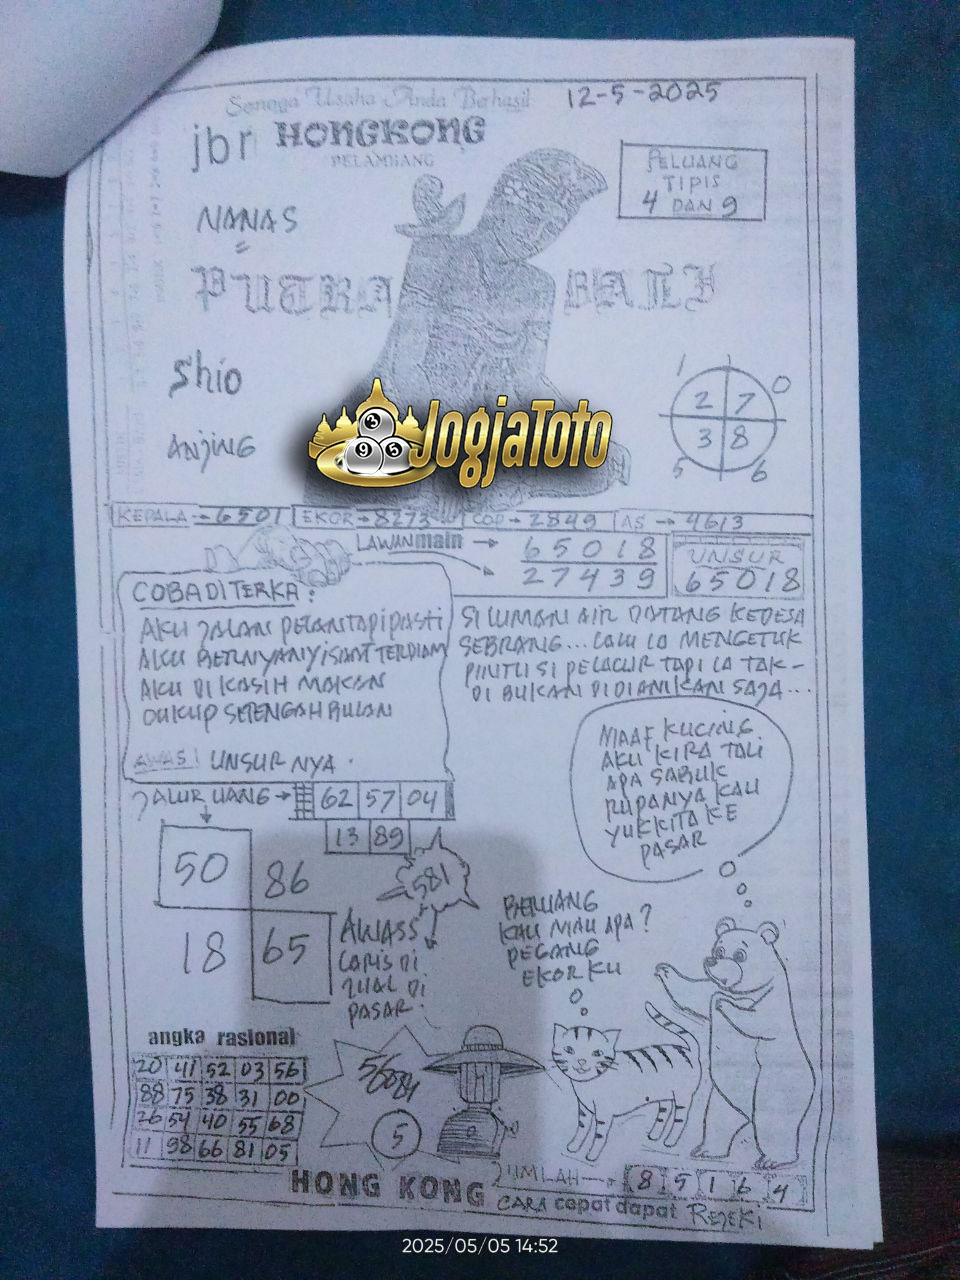 Semoga Usaha Anda Berhasil
12-5-2025
jbr HONGKONG
PELAMBANG
PELUANG
TIPIS
4 DAN 9
NANAS
=
PUTRA BALI
Shio
1 0
2 7
3 8
5 6
ANJING
3
9 5
JogjaToto
KEPALA → 6501 EKOR → 8273 COP → 2849 AS → 4613
LAWAN main → 65018
27439
UNSUR
65018
COBA DITERKA :
AKU JALAN PELAN TAPI PASTI
AKU BERNYANYI SAAT TERDIAM
AKU DI KASIH MAKAN
CUKUP SETENGAH BULAN
AWAS! UNSUR NYA .
SILUMAN AIR DATANG KEDESA
SEBRANG... LALU IA MENGETUK
PINTU SI PELACUR TAPI IA TAK -
DI BUKAN DIDIAMKAN SAJA...
MAAF KUCING
AKU KIRA TALI
APA SABUK
RUPANYA KAU
YUK KITA KE
PASAR
JALUR UANG → 62 57 04
13 89
50 86
18 65
581
AWASS
LARIS DI
JUAL DI
PASAR .
BERUANG
KAU MAU APA?
PEGANG
EKOR KU
angka rasional
20 41 52 03 56
88 75 38 31 00
26 54 40 55 68
11 98 66 81 05
5
JUMLAH → 8 5 1 6 4
HONG KONG
CARA cepat dapat REJEKI
2025/05/05 14:52